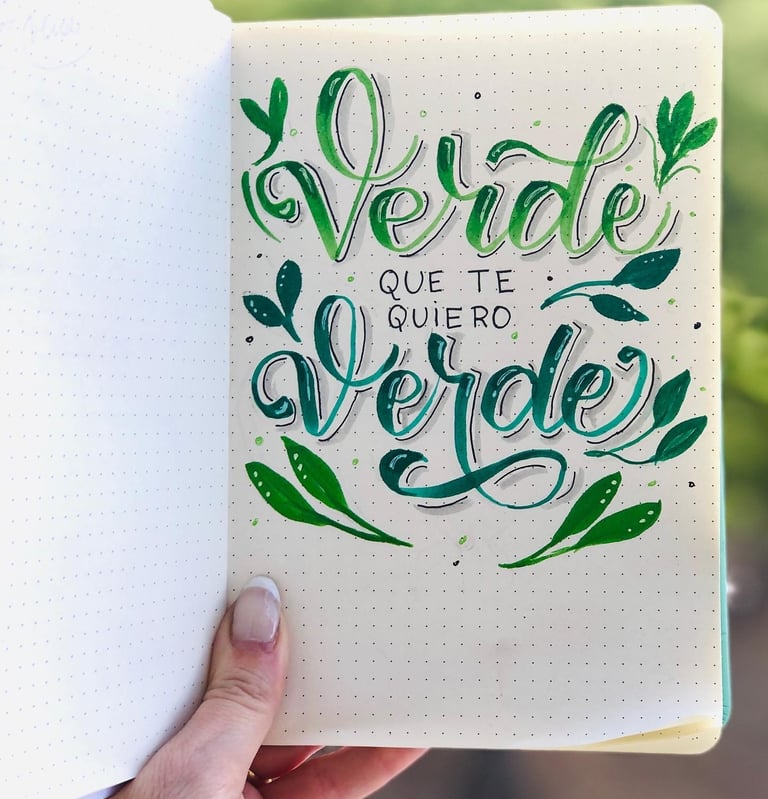 Verde
QUE TE
QUiERO
Verde